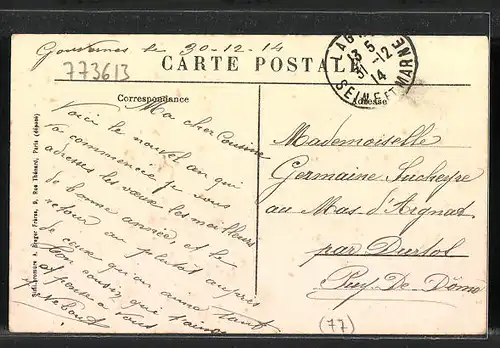 Gouvernes le 30-12-14
773613
CARTE POSTALE
LAGNY
13 5
31-12
14
SEINE ET MARNE
Correspondance
Adresse
Ma cher Cousine
Voici le nouvel an qui
va commencer je vous
adresses les vœux les meilleurs
de bonne année, et le
retour au plutôt auprès
de ceux qu'on aime tant
Ton cousin qui t'aime
et pense a vous
Mademoiselle
Germaine Sucheyre
au Mas-d'Argnat
par Durtol
Puy-De-Dôme
(77)
Breger Frères, 9, Rue Thénard, Paris (déposé)